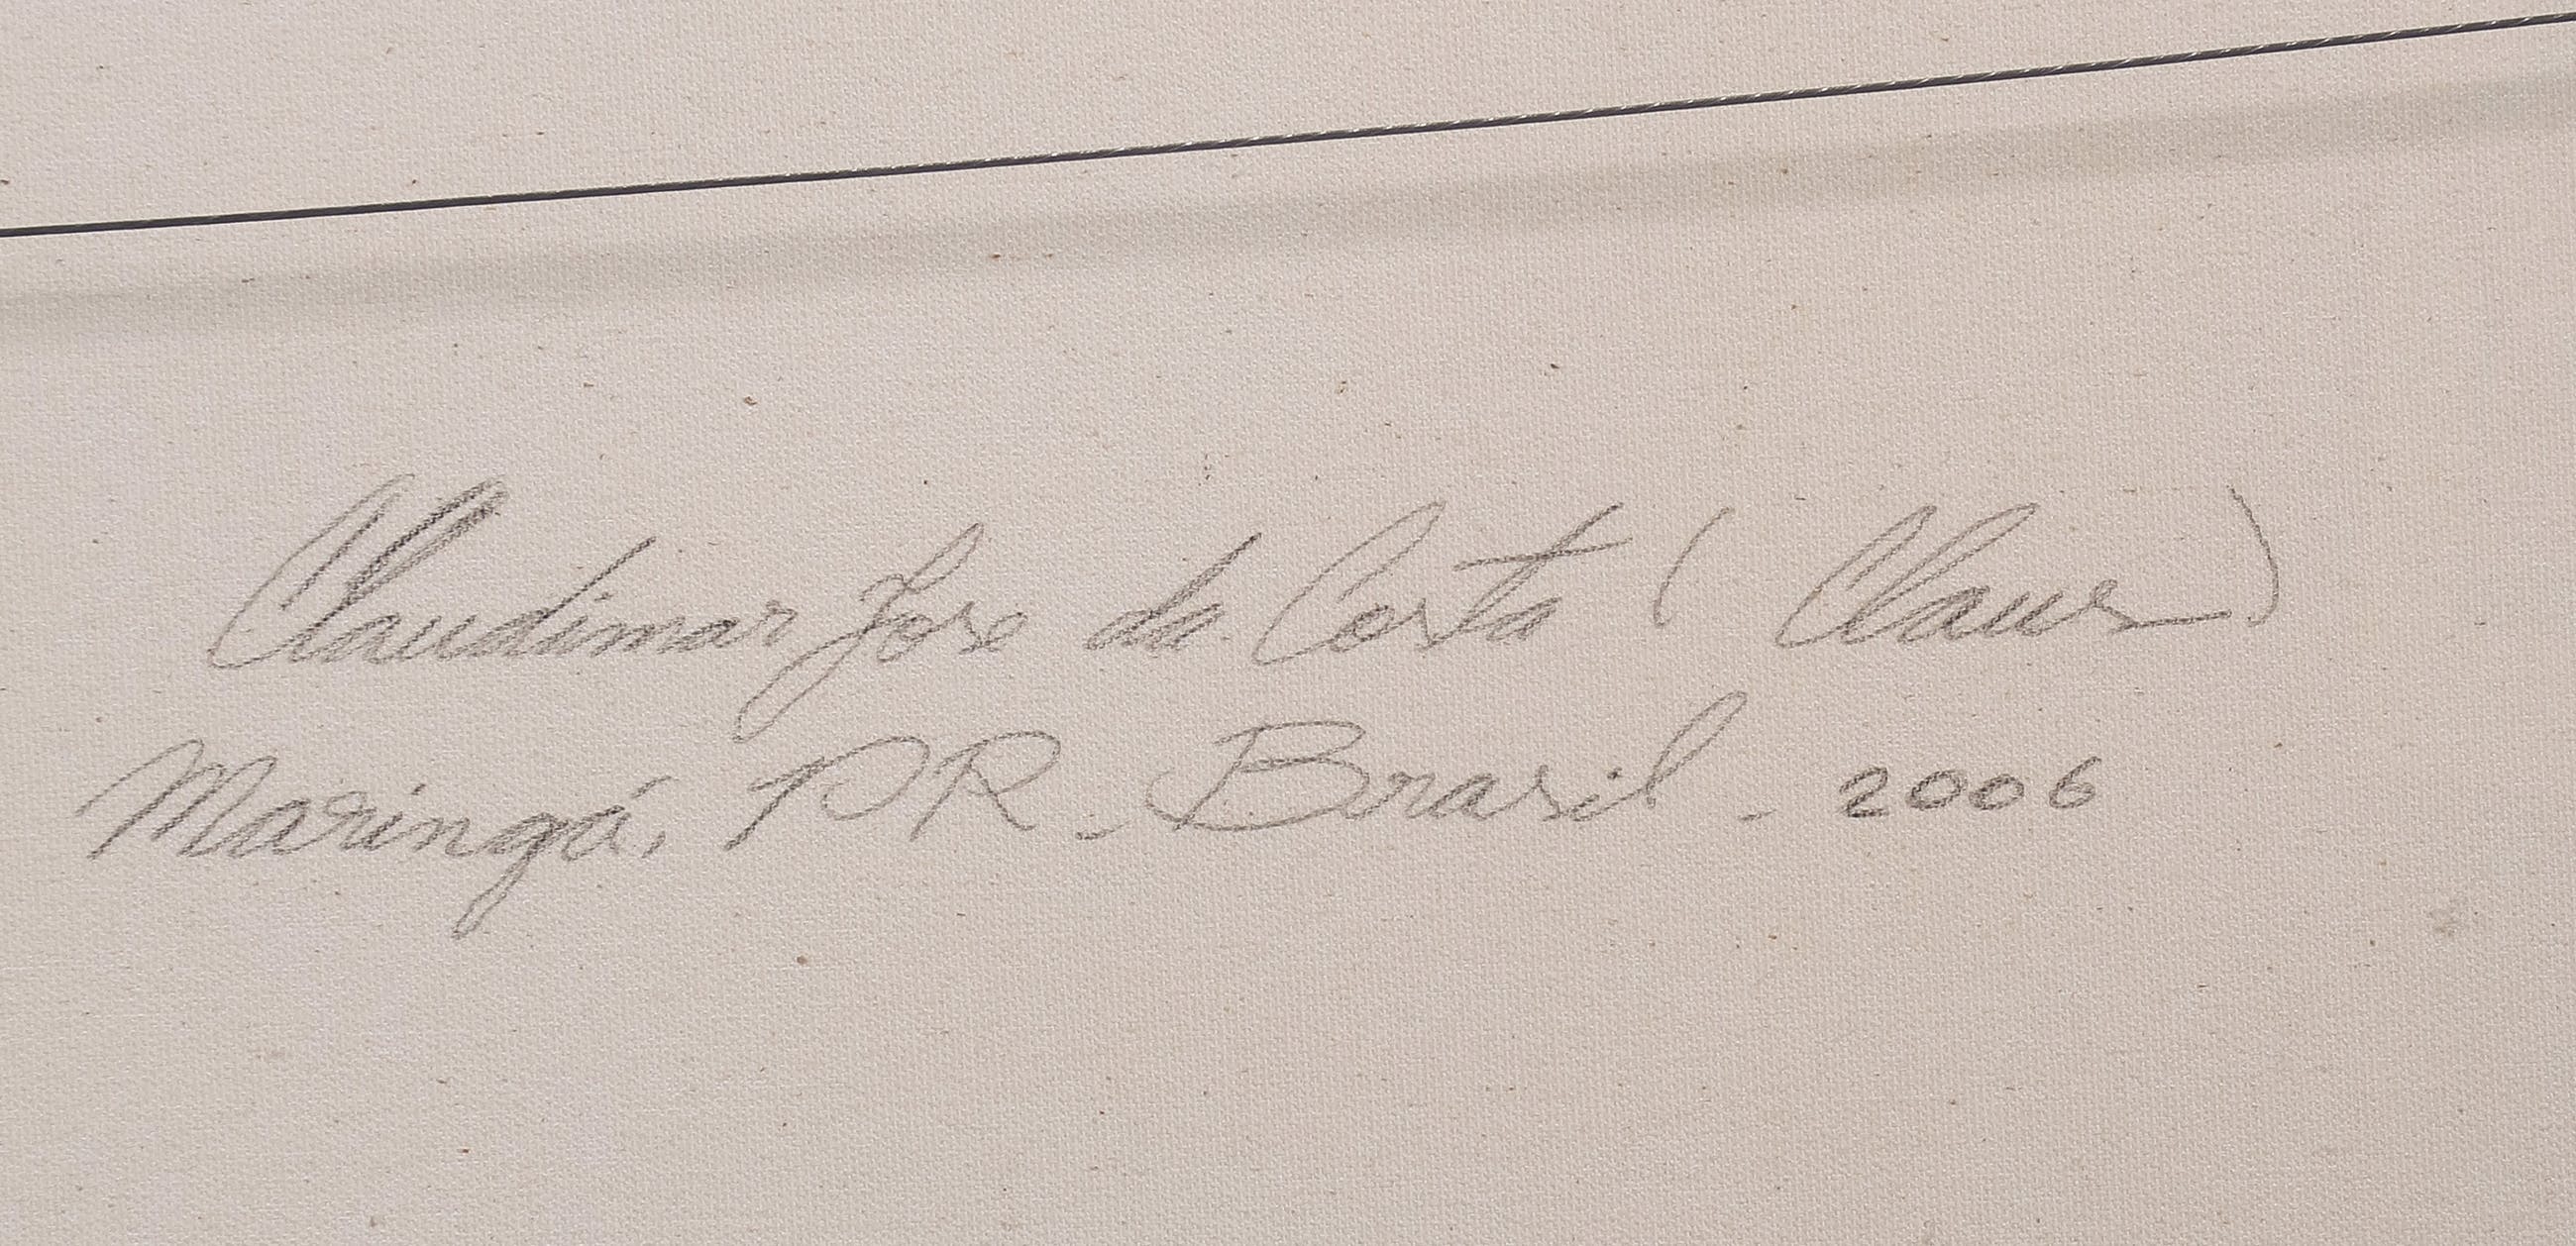 Claudimar Jose da Costa (Claus)
Maringá, PR - Brasil - 2006